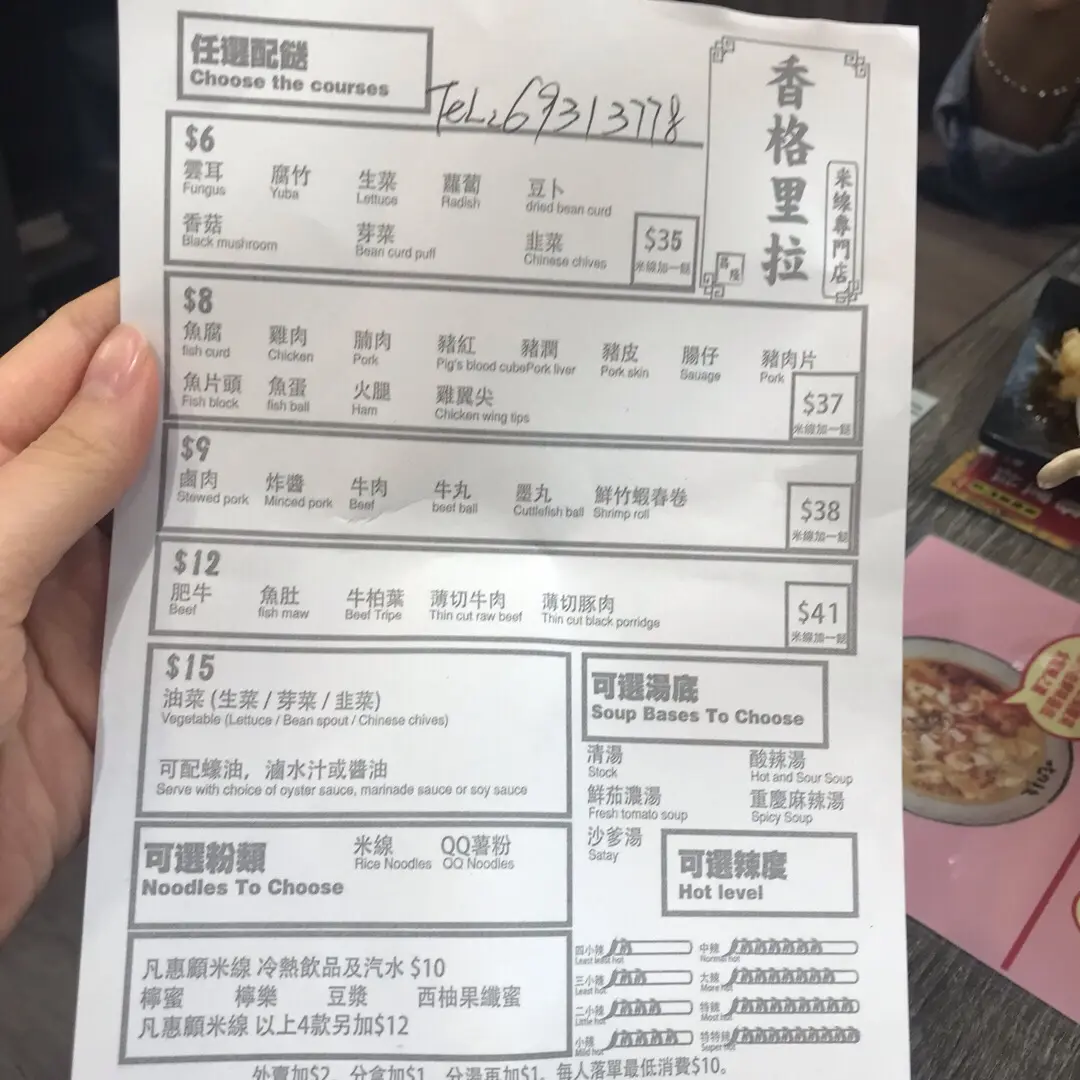 任選配餸
Choose the courses
TeL: 69313778
香格里拉
米線專門店
$6
雲耳 腐竹 生菜 蘿蔔 豆卜
Fungus Yuba Lettuce Radish dried bean curd
香菇 芽菜 韭菜
Black mushroom Bean curd puff Chinese chives
$35
米線加一餸
$8
魚腐 雞肉 腩肉 豬紅 豬潤 豬皮 腸仔 豬肉片
fish curd Chicken Pork Pig's blood cube Pork liver Pork skin Sauage Pork
魚片頭 魚蛋 火腿 雞翼尖
Fish block fish ball Ham Chicken wing tips
$37
米線加一餸
$9
鹵肉 炸醬 牛肉 牛丸 墨丸 鮮竹蝦春卷
Stewed pork Minced pork Beef beef ball Cuttlefish ball Shrimp roll
$38
米線加一餸
$12
肥牛 魚肚 牛柏葉 薄切牛肉 薄切豚肉
Beef fish maw Beef Tripe Thin cut raw beef Thin cut black porridge
$41
米線加一餸
$15
油菜 (生菜 / 芽菜 / 韭菜)
Vegetable (Lettuce / Bean spout / Chinese chives)
可配蠔油，滷水汁或醬油
Serve with choice of oyster sauce, marinade sauce or soy sauce
可選湯底
Soup Bases To Choose
清湯 酸辣湯
Stock Hot and Sour Soup
鮮茄濃湯 重慶麻辣湯
Fresh tomato soup Spicy Soup
沙爹湯
Satay
可選粉類
Noodles To Choose
米線 QQ薯粉
Rice Noodles QQ Noodles
可選辣度
Hot level
四小辣 中辣
Least least hot Normal hot
三小辣 大辣
Least hot More hot
二小辣 特辣
Little hot Most hot
小辣 特特辣
Mild hot Super hot
凡惠顧米線 冷熱飲品及汽水 $10
檸蜜 檸樂 豆漿 西柚果纖蜜
凡惠顧米線 以上4款另加$12
外賣加$2，分盒加$1，分湯再加$1，每人落單最低消費$10。